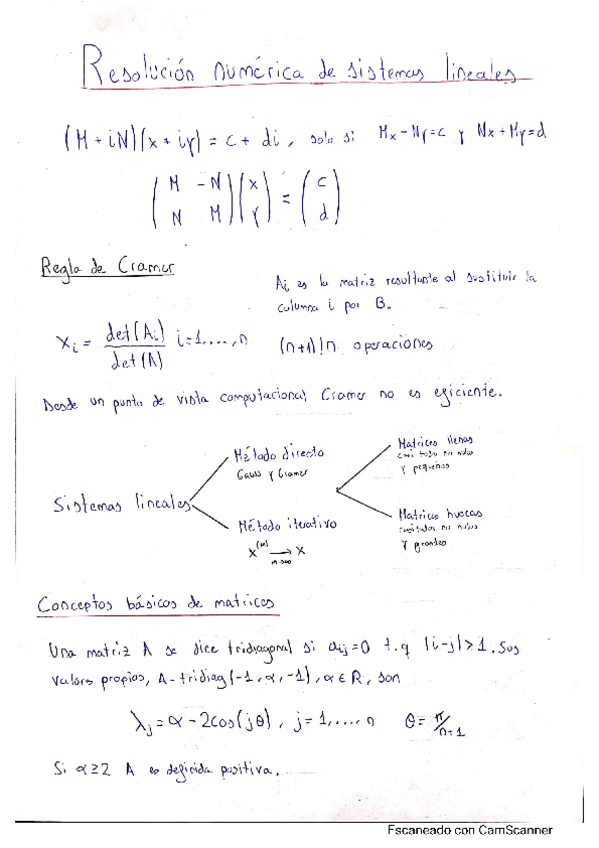 Resolución numérica de sistemas lineales
(M + iN)(x + iy) = c + di, solo si Mx - Ny = c y Nx + My = d
(M -N) (x) = (c)
(N M) (y) (d)
Regla de Cramer
Ai es la matriz resultante al sustituir la
columna i por B.
xi = det(Ai) / det(A) i=1,...,n (n+1)!n operaciones
Desde un punto de vista computacional, Cramer no es eficiente.
Sistemas lineales
Método directo
Gauss y Cramer
Método iterativo
x^(n) → x
n→∞
Matrices llenas
casi todos no nulos
y pequeñas
Matrices huecas
y grandes
Conceptos básicos de matrices
Una matriz A se dice tridiagonal si aij=0 t.q |i-j|>1. Sus
valores propios, A-tridiag(-1, α, -1), α ∈ R, son
λj = α - 2cos(jθ), j=1,...,n θ = π/n+1
Si α≥2 A es definida positiva.
Escaneado con CamScanner